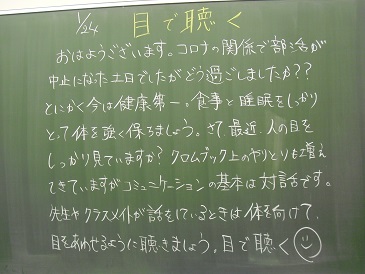 1/24 目で聴く
おはようございます。コロナの関係で部活が
中止になった土日でしたがどう過ごしましたか??
とにかく今は健康第一。食事と睡眠をしっかり
とって体を強く保ちましょう。さて、最近、人の目を
しっかり見ていますか?クロムブック上のやりとりも増え
てきていますがコミュニケーションの基本は対話です。
先生やクラスメイトが話をしているときは体を向けて、
目をあわせるように聴きましょう。目で聴く